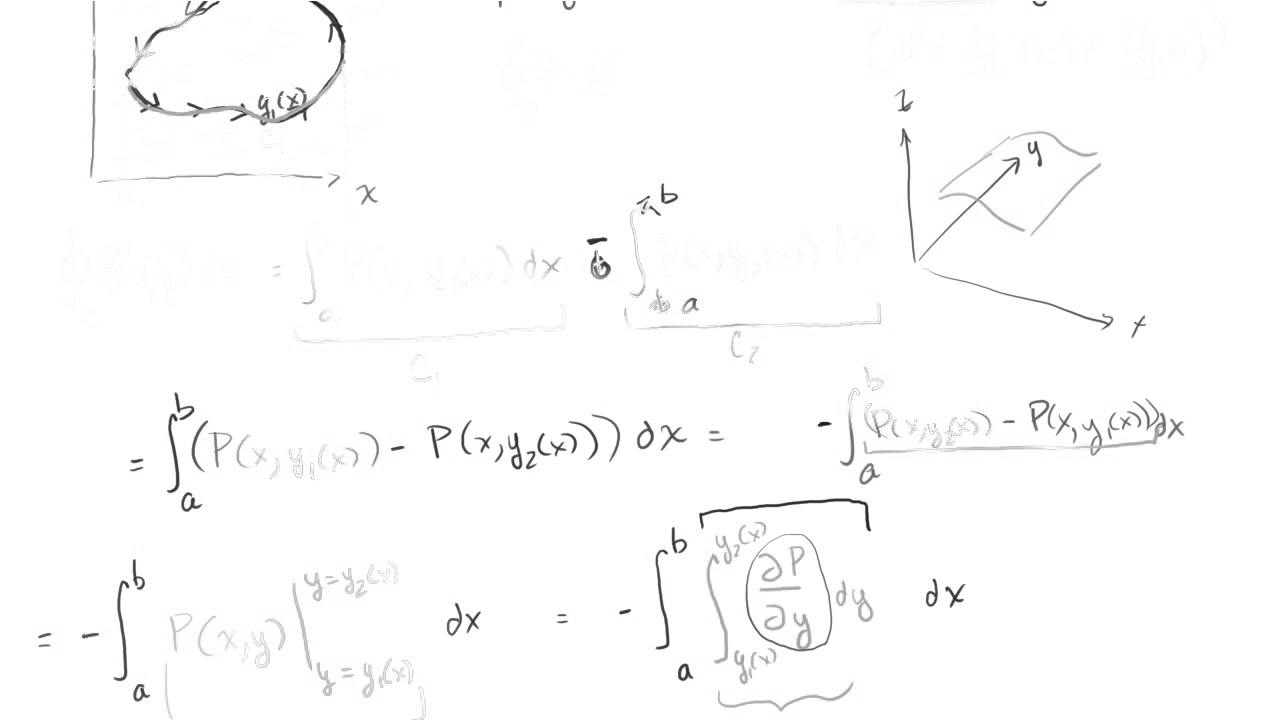 y₁(x)
x
z
y
x
∮ P(x,y) dx = ∫ₐᵇ P(x, y₁(x)) dx - ∫ₐᵇ P(x, y₂(x)) dx
C₁
C₂
= ∫ₐᵇ (P(x, y₁(x)) - P(x, y₂(x))) dx = -∫ₐᵇ (P(x, y₂(x)) - P(x, y₁(x))) dx
= - ∫ₐᵇ P(x,y) | y = y₂(x) y = y₁(x) dx = - ∫ₐᵇ ∫ y₂(x) y₁(x) ∂P/∂y dy dx